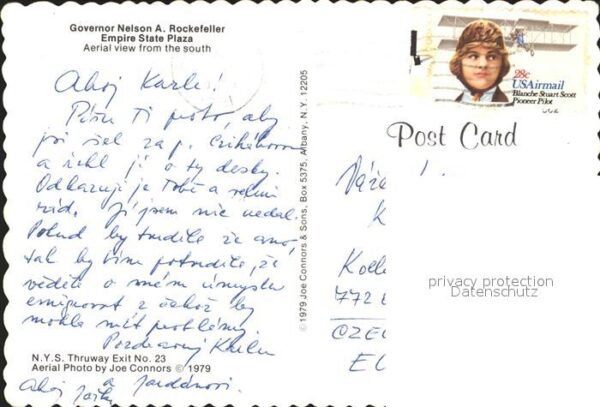 Governor Nelson A. Rockefeller
Empire State Plaza
Aerial view from the south
Ahoj Karle!
Píšu Ti proto, aby
jsi šel za p.
a řekl jí o ty desky.
Odkazuji je Tobě a velmi
rád. Jí jsem nic nedal.
Pokud by tvrdila že ano,
tak by tím potvrdila, že
věděla o mém úmyslu
emigrovat z čehož by
mohla mít problémy.
Pozdravuj
N.Y.S. Thruway Exit No. 23
Aerial Photo by Joe Connors © 1979
Ahoj
© 1979 Joe Connors & Sons, Box 5375, Albany, N.Y. 12205
28c
USAirmail
Blanche Stuart Scott
Pioneer Pilot
Post Card
Váže
K
772
CZE
privacy protection
Datenschutz